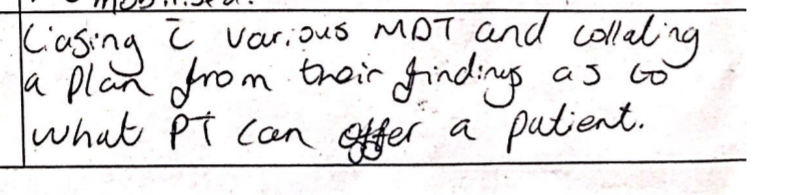 mobilised.
Liasing c̄ various MDT and collating
a plan from their findings as to
what PT can offer a patient.